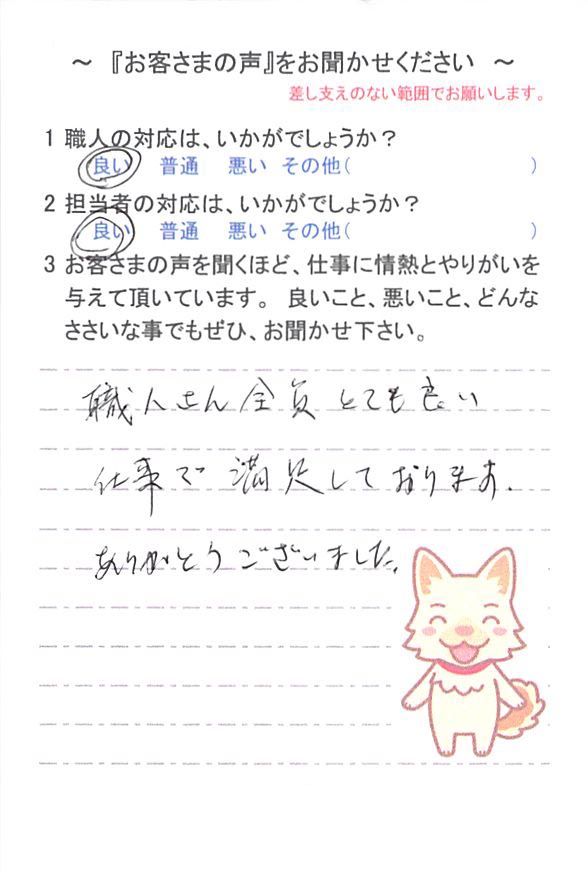 ～ 『お客さまの声』をお聞かせください ～
差し支えのない範囲でお願いします。
1 職人の対応は、いかがでしょうか？
良い 普通 悪い その他( )
2 担当者の対応は、いかがでしょうか？
良い 普通 悪い その他( )
3 お客さまの声を聞くほど、仕事に情熱とやりがいを
与えて頂いています。 良いこと、悪いこと、どんな
ささいな事でもぜひ、お聞かせ下さい。
職人さん全員とても良い
仕事で満足しております.
ありがとうございました.